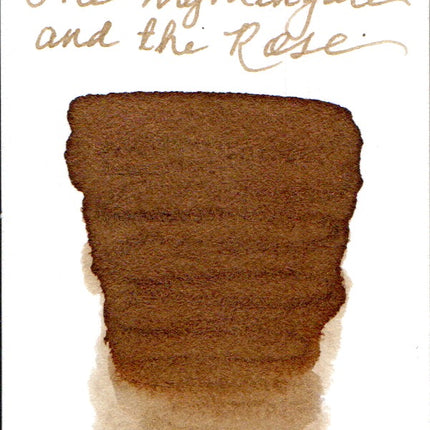 The Nightingale
and the Rose